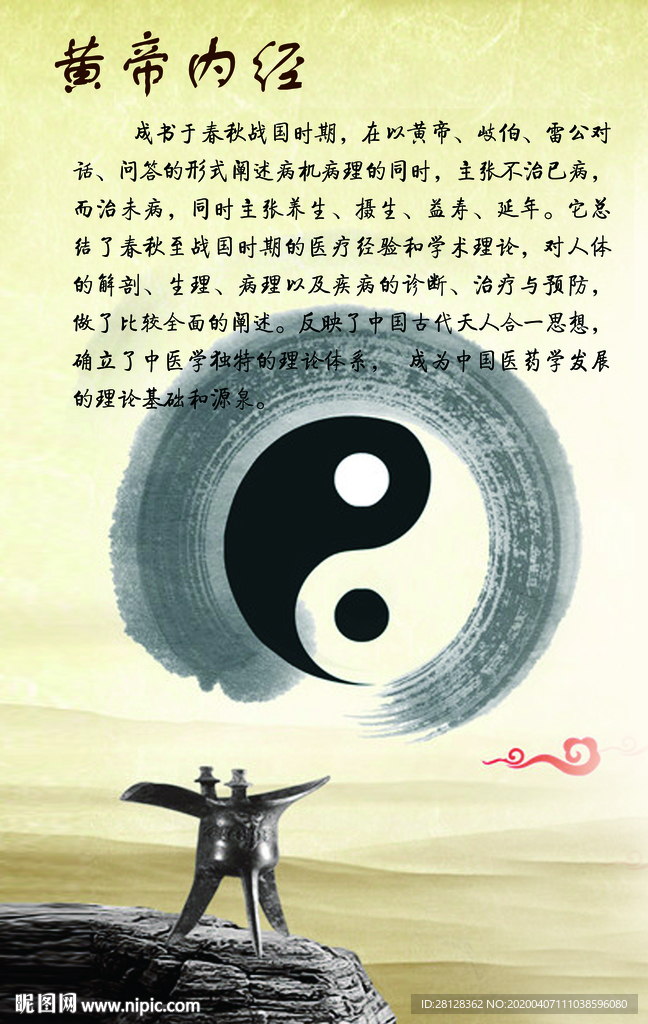 黄帝内经
成书于春秋战国时期，在以黄帝、岐伯、雷公对
话、问答的形式阐述病机病理的同时，主张不治已病，
而治未病，同时主张养生、摄生、益寿、延年。它总
结了春秋至战国时期的医疗经验和学术理论，对人体
的解剖、生理、病理以及疾病的诊断、治疗与预防，
做了比较全面的阐述。反映了中国古代天人合一思想，
确立了中医学独特的理论体系， 成为中国医药学发展
的理论基础和源泉。
昵图网 www.nipic.com
ID:28128362 NO:20200407111038596080